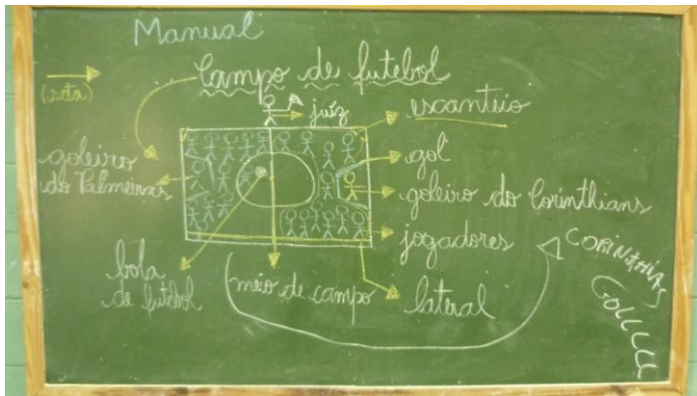 Manual
Campo de futebol
(seta)
juíz
escanteio
goleiro
do Palmeiras
gol
goleiro do Corinthians
jogadores
bola
de futebol
meio de campo
lateral
CORINTHIAS
GOLLLLL